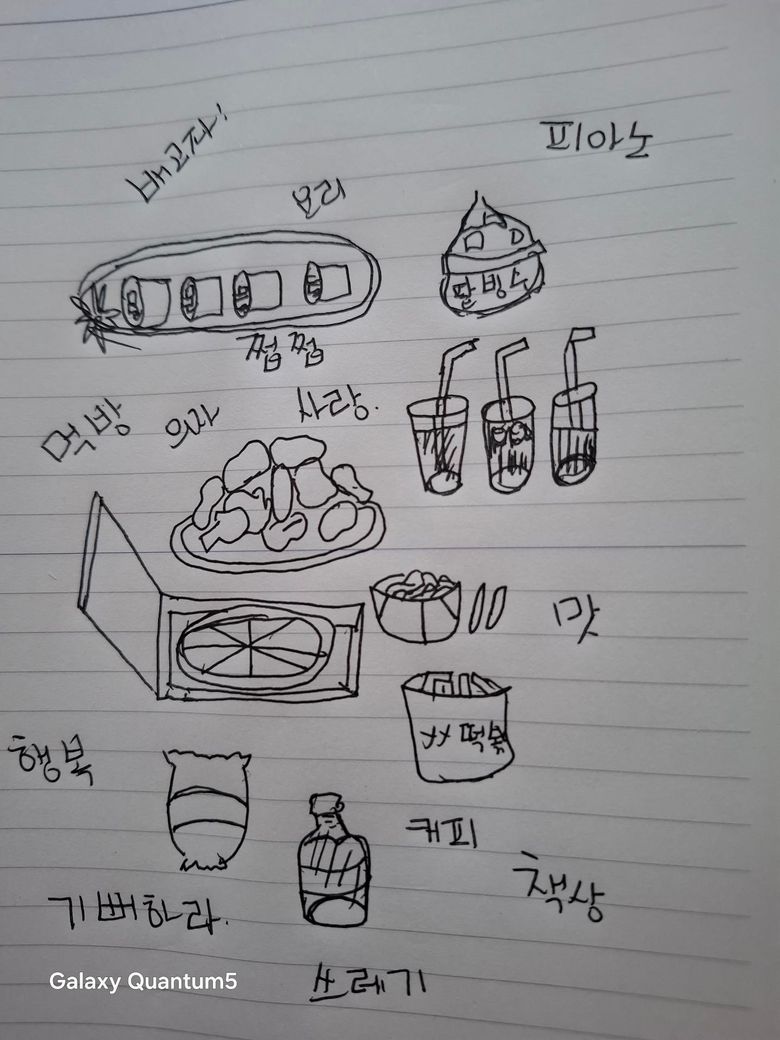 배고파!
피아노
요리
팥빙수
쩝쩝
먹방
의자
사랑.
맛
XX떡볶
행복
커피
책상
기뻐하라.
쓰레기
Galaxy Quantum5